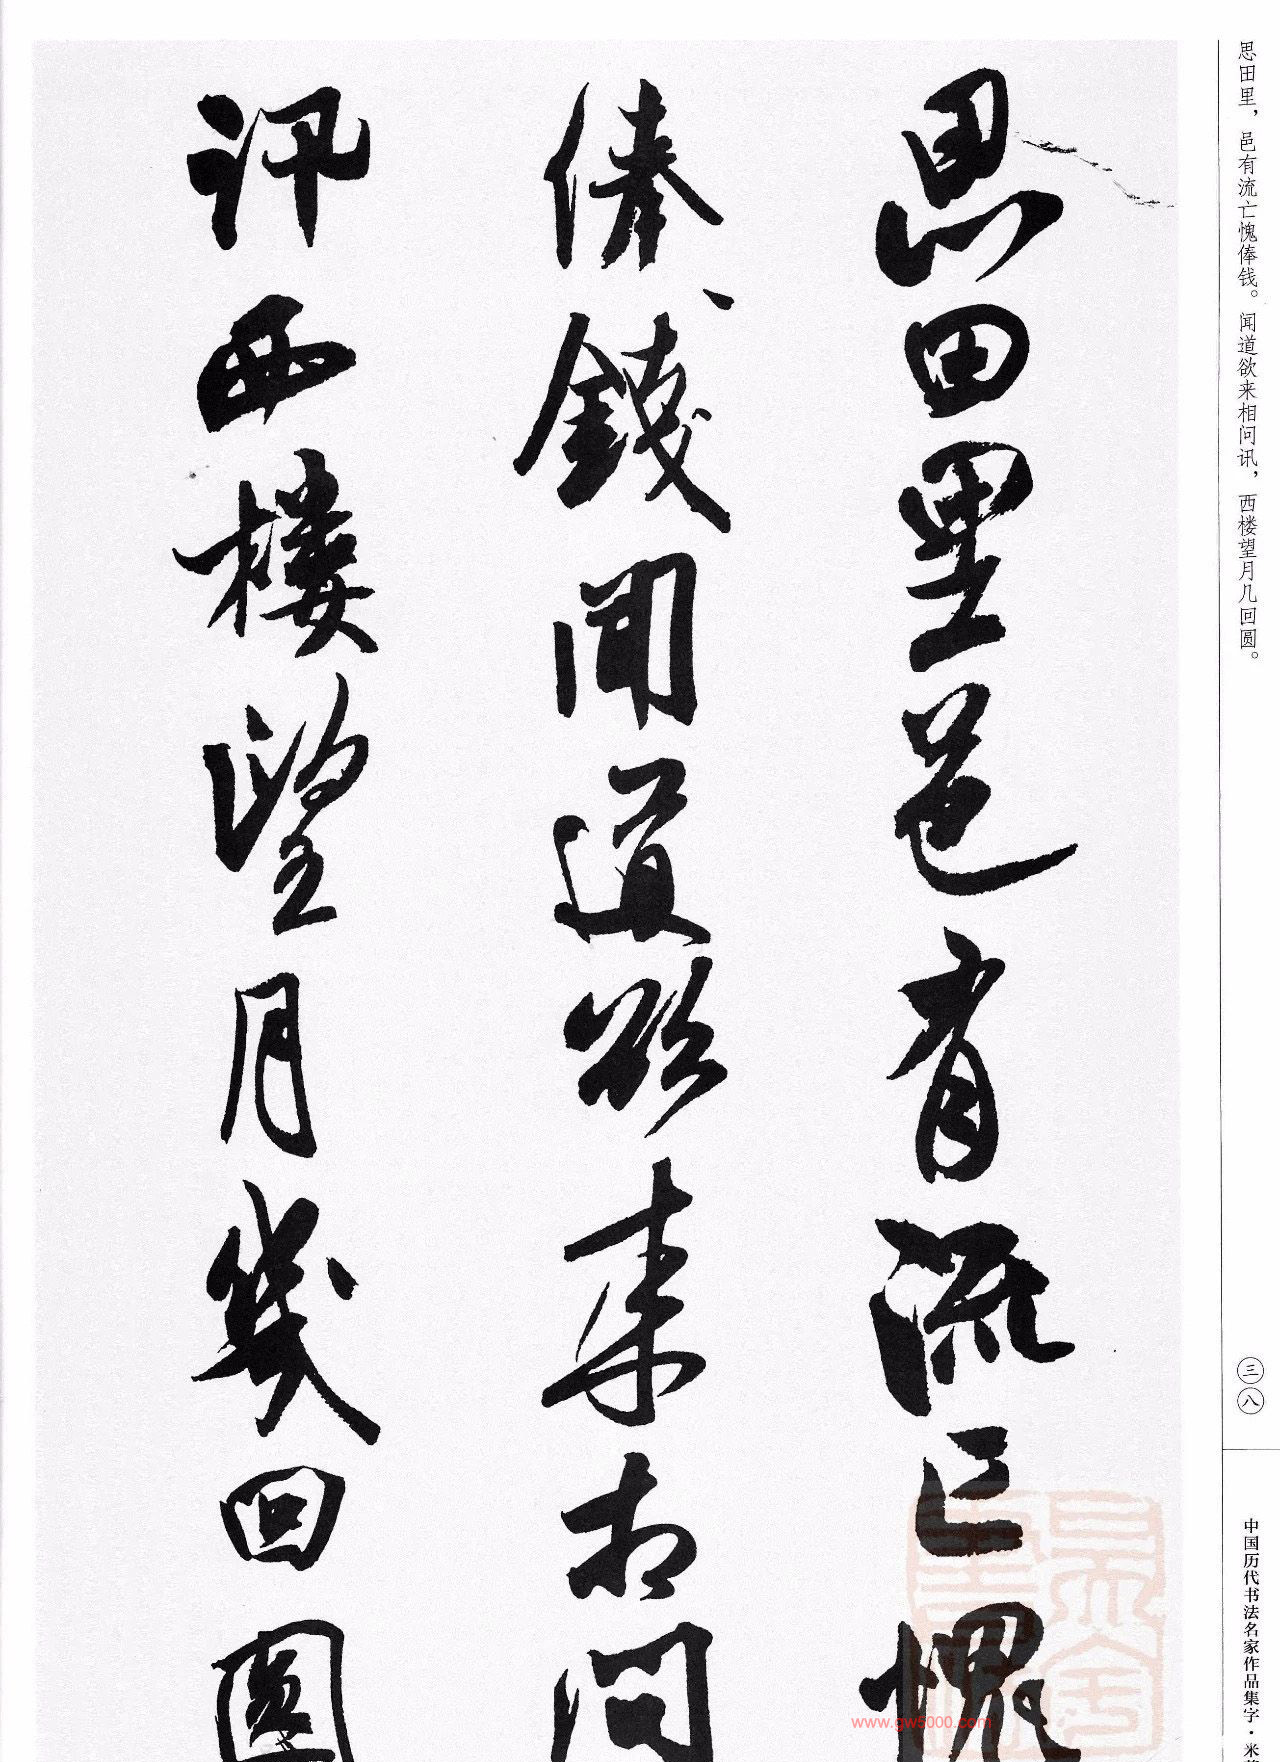 思田里，邑有流亡愧俸钱。闻道欲来相问讯，西楼望月几回圆。
思田里邑有流亡愧
俸錢聞道欲来相問
訊西樓望月幾回圓
三八
中国历代书法名家作品集字·米
www.gw5000.com